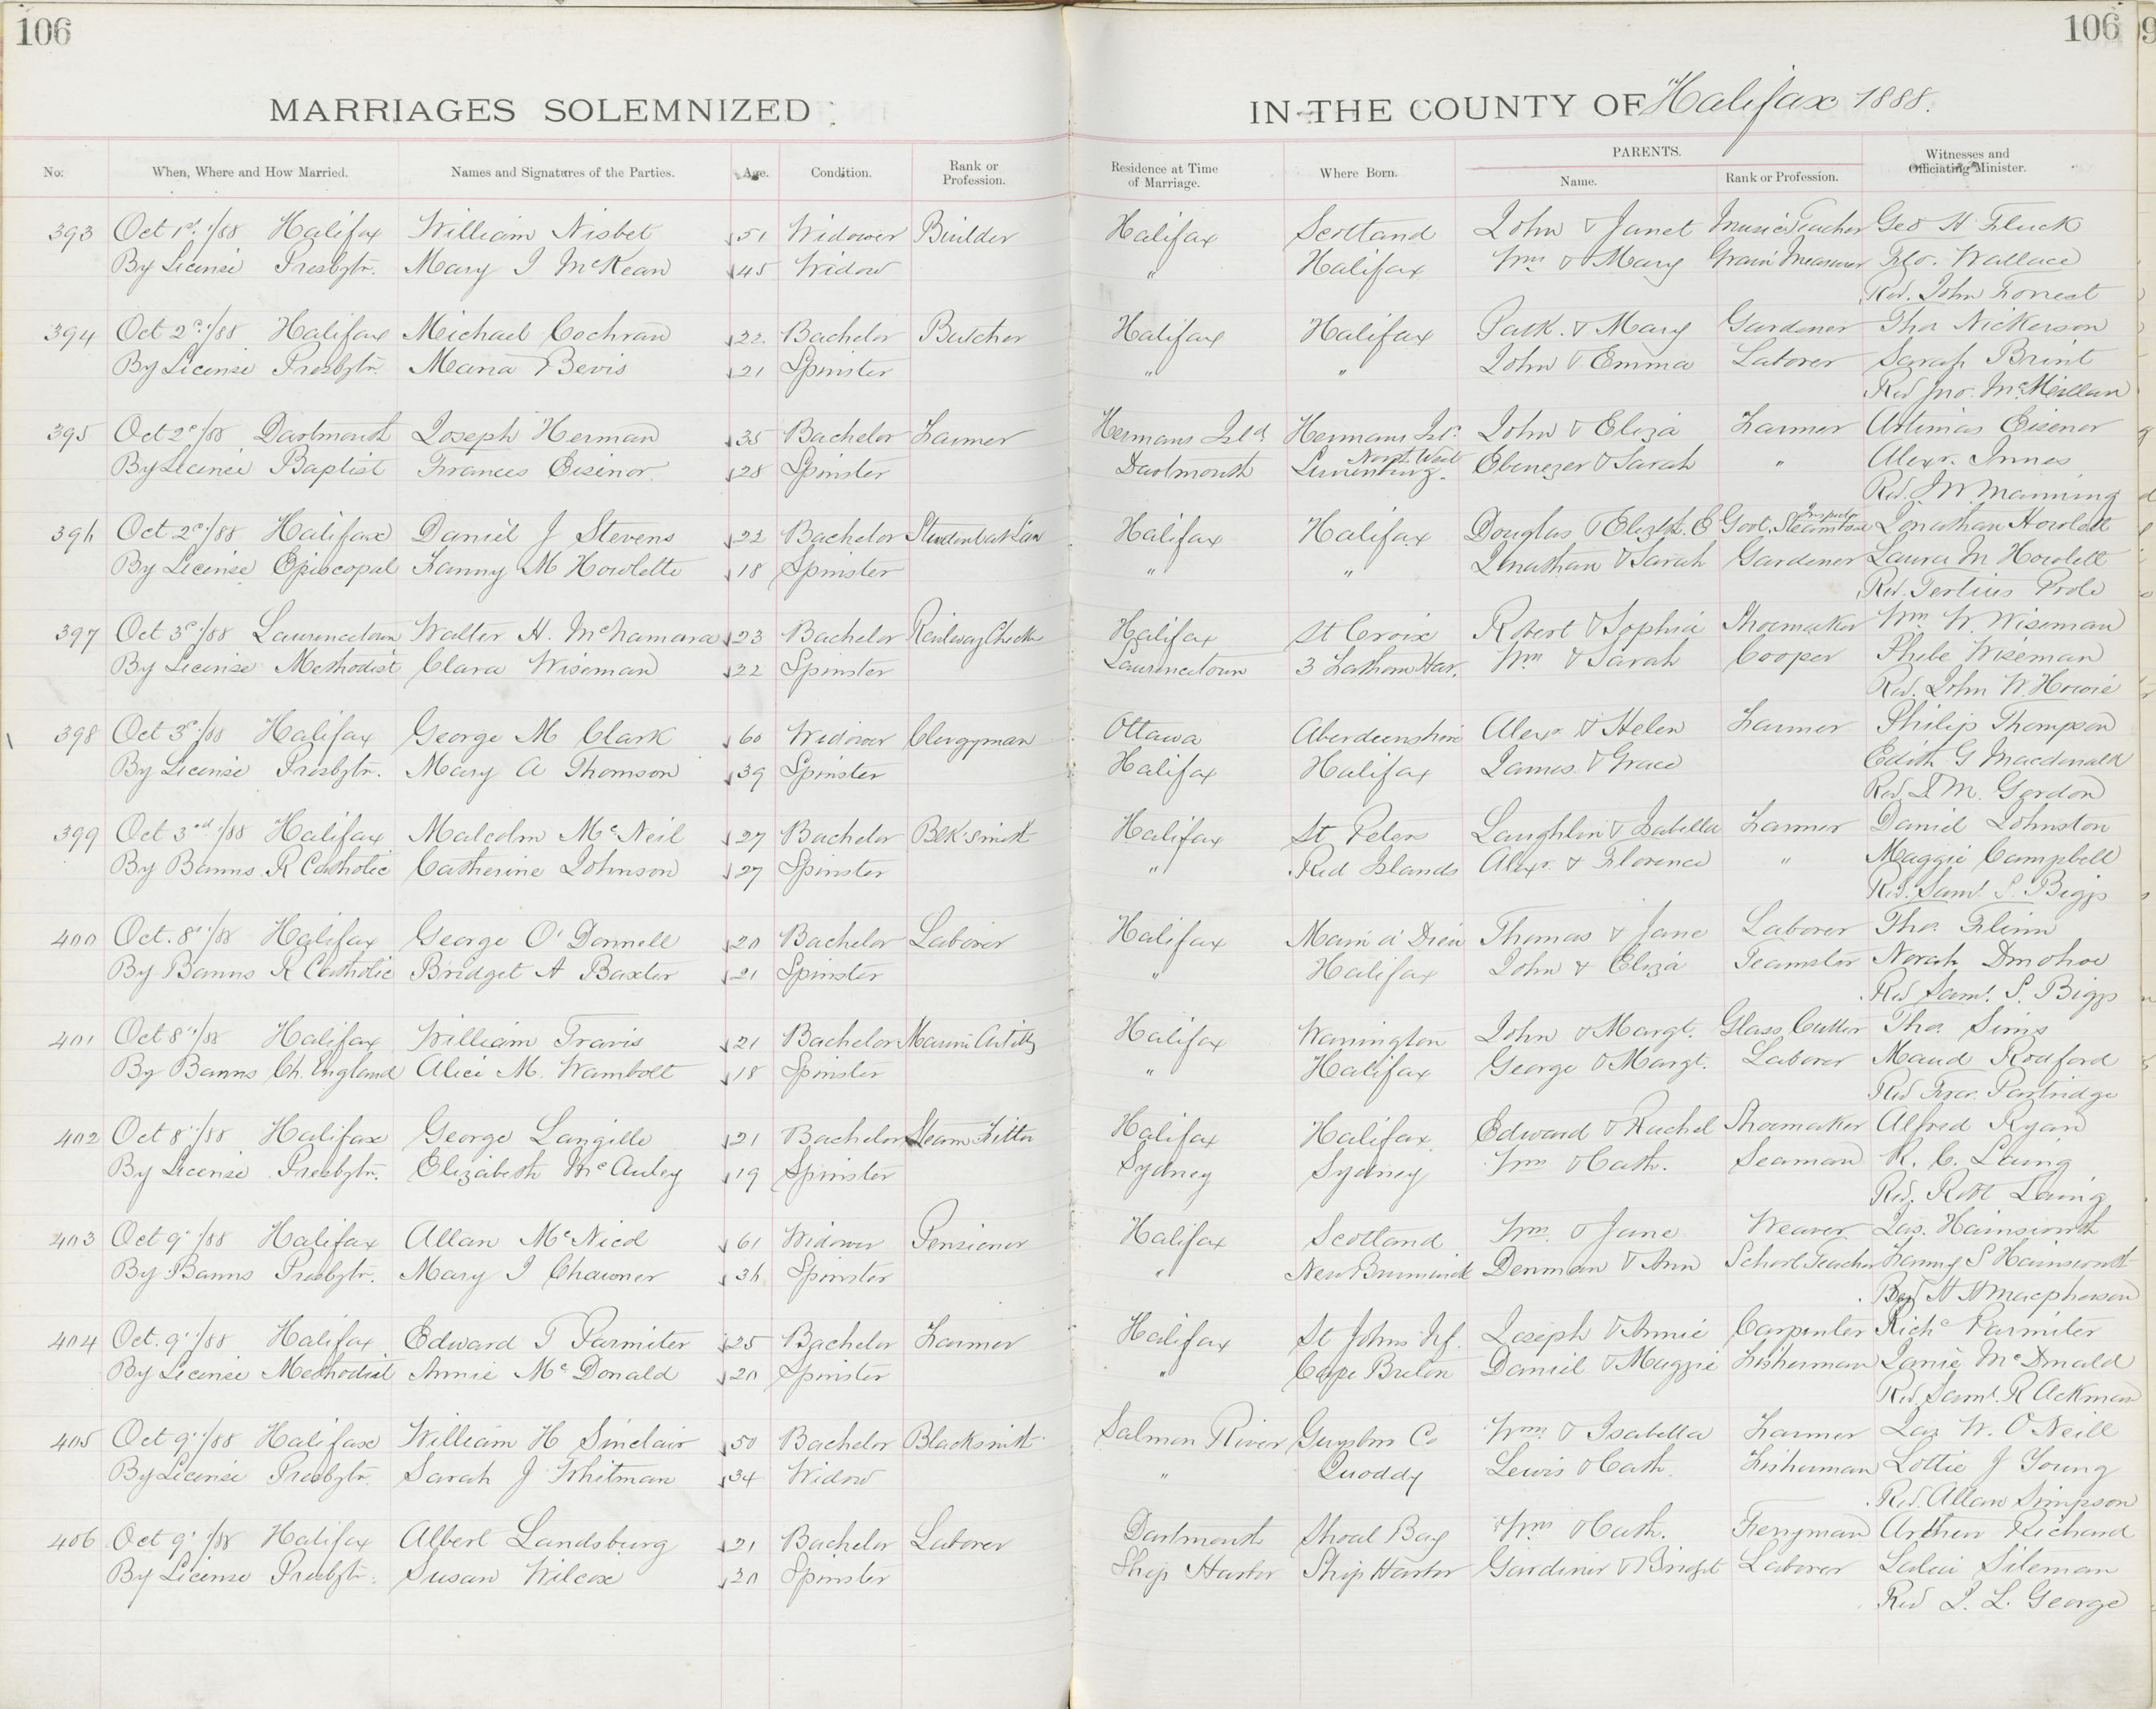 106
106
MARRIAGES SOLEMNIZED
IN THE COUNTY OF Halifax 1888.
No.
When, Where and How Married.
Names and Signatures of the Parties.
Age.
Condition.
Rank or Profession.
Residence at Time of Marriage.
Where Born.
PARENTS.
Name.
Rank or Profession.
Witnesses and Officiating Minister.
393 Oct 1st /88 Halifax William Nisbet 51 Widower Builder Halifax Scotland John & Janet Music Teacher Geo H Fluck
By License Presbytr. Mary I McKean 45 Widow " Halifax Wm & Mary Grain Measurer Wallace
Rev. John Forrest
394 Oct 2d /88 Halifax Michael Cochran 22 Bachelor Butcher Halifax Halifax Patk. & Mary Gardener Thos Nickerson
By License Presbytr. Maria Bevis 21 Spinster " " John & Emma Laborer Sarah Brint
Rev Jno. McMillan
395 Oct 2d /88 Dartmouth Joseph Herman 35 Bachelor Farmer Hermans Isld Hermans Isd. John & Eliza Farmer Artimas Eisenor
By License Baptist Frances Eisinor. 28 Spinster Dartmouth North West Lunenburg. Ebenezer & Sarah " Alexr. Innes
Rev. J W Manning
396 Oct 2d /88 Halifax Daniel J Stevens 22 Bachelor Student at Law Halifax Halifax Douglas & Elizth. E Govt. Steamboat Jonathan Howlett
By License Episcopal Fanny M Howlette 18 Spinster " " Jonathan & Sarah Gardener Laura M Howlett
Rev. Tertius Poole
397 Oct 3d /88 Laurencetown Walter H. McNamara 23 Bachelor Railway Halifax St Croix Robert & Sophia Shoemaker Wm W. Wiseman
By License Methodist Clara Wiseman 22 Spinster Laurencetown 3 Fathom Har. Wm & Sarah Cooper Phebe Wiseman
Rev. John W. Howie
398 Oct 3d /88 Halifax George M Clark 60 Widower Clergyman Ottawa Aberdeenshire Alexr & Helen Farmer Philip Thompson
By License Presbytr. Mary A Thomson 39 Spinster Halifax Halifax James & Grace Edith G Macdonald
Rev. D M. Gordon
399 Oct 3rd /88 Halifax Malcolm McNeil 27 Bachelor Blk'smith Halifax St Peters Laughlin & Isabella Farmer Daniel Johnston
By Banns R Catholic Catherine Johnson 27 Spinster " Red Islands Alexr. & Florence " Maggie Campbell
Rev. Saml S. Biggs
400 Oct. 8th /88 Halifax George O'Donnell 20 Bachelor Laborer Halifax Main a' Dieu Thomas & Jane Laborer Thos. Flinn
By Banns R Catholic Bridget A Baxter 21 Spinster " Halifax John & Eliza Teamster Norah Donohoe
Rev Saml. S. Biggs
401 Oct 8th /88 Halifax William Travis 21 Bachelor Halifax Warrington John & Margt. Glass Cutter Thos Sims
By Banns Ch. England Alice M. Wambolt 18 Spinster " Halifax George & Margt. Laborer Maud Rodford
Rev Fras. Partridge
402 Oct 8th /88 Halifax George Langille 21 Bachelor Steam Fitter Halifax Halifax Edward & Rachel Shoemaker Alfred Ryan
By License Presbytr. Elizabeth McAuley 19 Spinster Sydney Sydney Wm & Cath. Seaman R. C. Laing
Rev. Robt Laing
403 Oct 9th /88 Halifax Allan McNicol 61 Widower Pensioner Halifax Scotland Wm. & Jane Weaver Jas. Hainsworth
By Banns Presbytr. Mary I Chawner 36 Spinster " New Brunswick Denman & Ann School Teacher Fanny S Hainsworth
Rev H H Macpherson
404 Oct. 9th /88 Halifax Edward T Parmiter 25 Bachelor Farmer Halifax St Johns Nf. Joseph & Annie Carpenter Richd Parmiter
By License Methodist Annie McDonald 20 Spinster " Cape Breton Daniel & Maggie Fisherman Janie McDonald
Rev. Saml. R Ackman
405 Oct 9th /88 Halifax William H Sinclair 50 Bachelor Blacksmith Salmon River Guysbro Co Wm. & Isabella Farmer Jas W. O'Neill
By License Presbytr. Sarah J Whitman 34 Widow " Quoddy Lewis & Cath. Fisherman Lottie J Young
Rev. Allan Simpson
406 Oct 9th /88 Halifax Albert Landsburg 21 Bachelor Laborer Dartmouth Shoal Bay Wm & Cath. Ferryman Arthur Richard
By License Presbytr. Susan Wilcox 20 Spinster Ship Harbor Ship Harbor Gardiner & Bridgt Laborer Sileman
Rev J. L. George